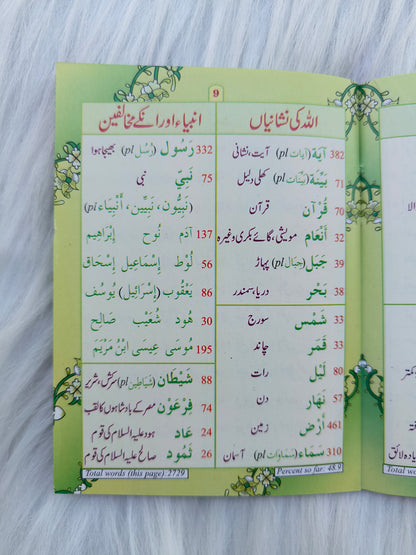 9
اللہ کی نشانیاں
382 آيَة (آيات pl) آیت، نشانی
71 بَيِّنَة (بَيِّنات pl) کھلی دلیل
70 قُرْآن قرآن
32 أَنْعَام مویشی، گائے بکری وغیرہ
39 جَبَل (جِبَال pl) پہاڑ
38 بَحْر دریا، سمندر
33 شَمْس سورج
33 قَمَر چاند
80 لَيْل رات
57 نَهَار دن
461 أَرْض زمین
310 سَمَاء (سَمَاوَات pl) آسمان
Percent so far: 48.9
انبیاء اور انکے مخالفین
332 رَسُول (رُسُل pl) بھیجا ہوا
75 نَبِيّ نبی
(نَبِيُّون، نَبِيِّين، أَنْبِيَاء pl)
137 آدَم نُوح إِبْرَاهِيم
56 لُوْط إِسْمَاعِيل إِسْحَاق
86 يَعْقُوب (إِسْرَائِيل) يُوسُف
30 هُود شُعَيْب صَالِح
195 مُوسَى عِيسَى ابْنُ مَرْيَم
88 شَيْطَان (شَيَاطِين pl) سرکش، شریر
74 فِرْعَوْن مصر کے بادشاہوں کا لقب
24 عَاد ہود علیہ السلام کی قوم
26 ثَمُود صالح علیہ السلام کی قوم
Total words (this page): 2729